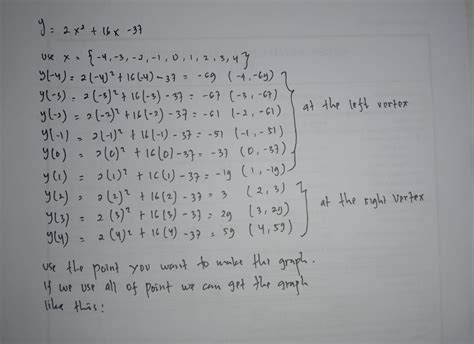 y = 2x² + 16x - 37
use x = {-4, -3, -2, -1, 0, 1, 2, 3, 4}
y(-4) = 2(-4)² + 16(-4) - 37 = -69 (-4, -69)
y(-3) = 2(-3)² + 16(-3) - 37 = -67 (-3, -67)
y(-2) = 2(-2)² + 16(-2) - 37 = -61 (-2, -61)
y(-1) = 2(-1)² + 16(-1) - 37 = -51 (-1, -51)
y(0) = 2(0)² + 16(0) - 37 = -37 (0, -37)
y(1) = 2(1)² + 16(1) - 37 = -19 (1, -19)
at the left vertex
y(2) = 2(2)² + 16(2) - 37 = 3 (2, 3)
y(3) = 2(3)² + 16(3) - 37 = 29 (3, 29)
y(4) = 2(4)² + 16(4) - 37 = 59 (4, 59)
at the right vertex
use the point you want to make the graph.
if we use all of point we can get the graph
like this: